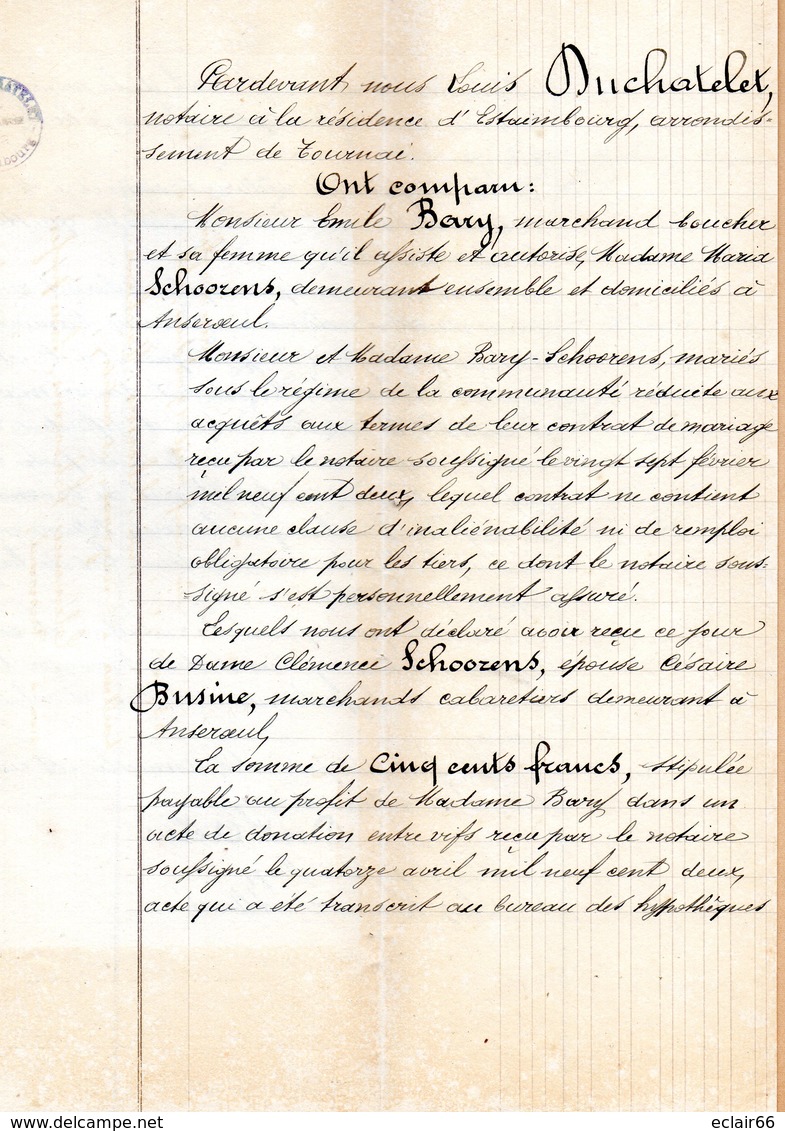 Pardevant nous Louis Duchatelet,
notaire à la résidence d'Estaimbourg, arrondis-
sement de Tournai.
Ont comparu:
Monsieur Emile Bary, marchand boucher
et sa femme qu'il assiste et autorise, Madame Maria
Schoorens, demeurant ensemble et domiciliés à
Anseroeul.
Monsieur et Madame Bary-Schoorens, mariés
sous le régime de la communauté réduite aux
acquêts aux termes de leur contrat de mariage
reçu par le notaire soussigné le vingt sept février
mil neuf cent deux, lequel contrat ne contient
aucune clause d'inaliénabilité ni de remploi
obligatoire pour les tiers, ce dont le notaire sous-
signé s'est personnellement assuré.
Lesquels nous ont déclaré avoir reçu ce jour
de Dame Clémence Schoorens, épouse Césaire
Busine, marchands cabaretiers demeurant à
Anseroeul,
La somme de Cinq cents francs, stipulée
payable au profit de Madame Bary dans un
acte de donation entre vifs reçu par le notaire
soussigné le quatorze avril mil neuf cent deux,
acte qui a été transcrit au bureau des hypothèques
eclair66
delcampe.net